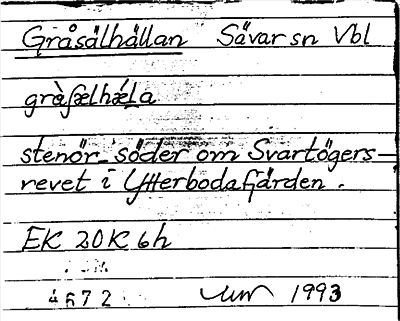 Gråsälhällan Sävar sn Vbl
gràsælhǽLa
stenör söder om Svartögers-
revet i Ytterbodafjärden.
EK 20K 6h
4672 1993